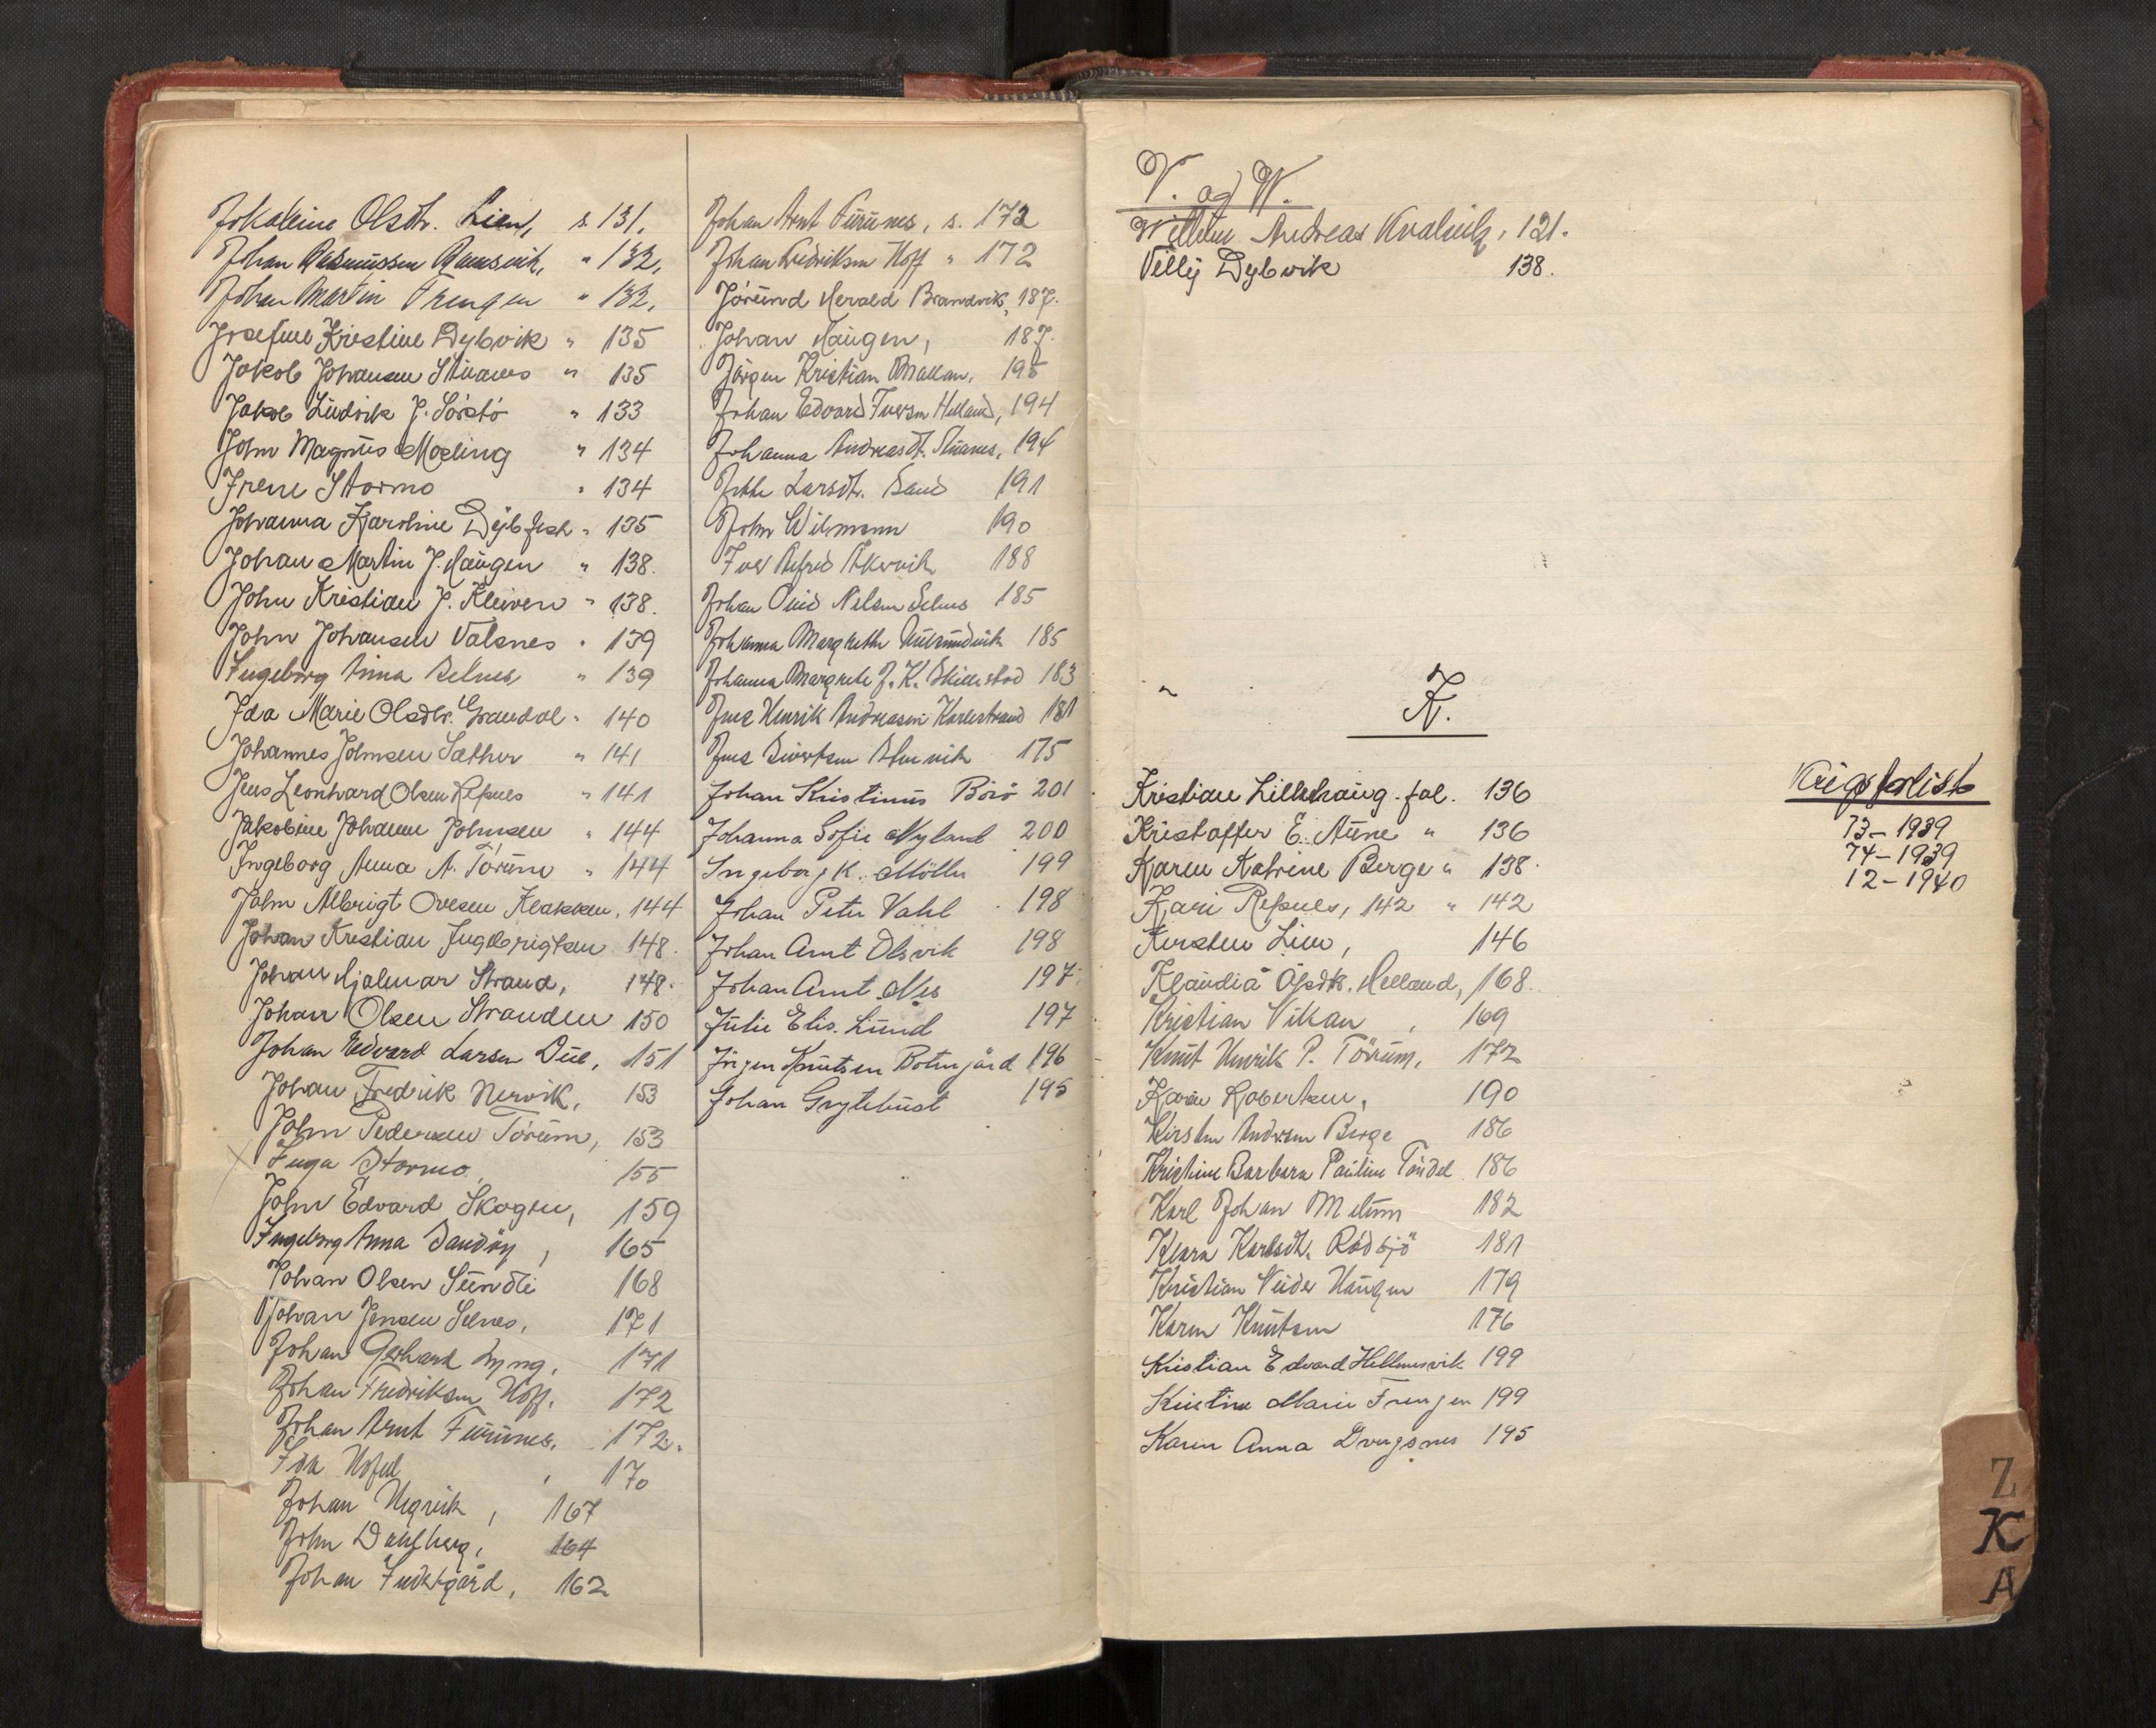 Jokaleine Olsdtr. Lien, s. 131.
Johan Rasmussen Ramsvik, " 132.
Johan Martin Frengen " 132.
Josefine Kristine Dybvik " 135
Jakob Johansen Stuanes " 135
Jakob Ludvik J. Sörstö " 133
John Magnus Mæling " 134
Irene Stormo " 134
Johanna Karoline Dybfest " 135
Johan Martin J. Haugen " 138.
John Kristian J. Kleiven " 138.
John Johansen Valsnes " 139
Ingeborg Anna Selnes " 139
Ida Marie Olsdtr. Grandal " 140
Johannes Johnsen Sæther " 141
Jens Leonhard Olsen Refsnes " 141
Jakobine Johanne Johnsen " 144
Ingeborg Anna A. Törum " 144
John Albrigt Ovesen Klakken, 144
Johan Kristian Ingebrigtsen 148.
Johan Hjalmar Strand, 148.
Johan Olsen Stranden 150
Johan Edvard Larsen Due, 151
Johan Fredrik Nervik, 153
John Pedersen Törum, 153
Inga Stormo 155
John Edvard Skogen, 159
Ingeborg Anna Sandöy, 165
Johan Olsen Sundli 168
Johan Jensen Selnes, 171
Johan Gerhard Lyng, 171
Johan Fredriksen Hoff. 172
Johan Arnt Furunes, 172.
Ida Hoful, 170
Johan Hegvik, 167
John Dahlberg, 164
Johan Indergård, 162
Johan Arnt Furunes, s. 172
Johan Fredriksen Hoff " 172
Jörund Herald Brandvik, 187.
Johan Haugen, 187.
Jörgen Kristian Mællan, 195
Johan Edvard Iversen Helland, 194
Johanna Andreasdt. Stuanes, 194
Larsdt. Sand 191
John Wilmann 190
Iver Alfred Akervik 188
Johan Nelsen Selnes 185
Johanna Margrethe 185
Johanna Margrete J. K. Skillestad 183
Jens Henrik Andreasen Karlestrand 181
Jens Sivertsen 175
Johan Kristinus Börö 201
Johanna Sofie Nyland 200
Ingeborg K. Möller 199
Johan Peter Vahl 198
Johan Arnt Olsvik 198
Johan Arnt Nes 197
Julie Elis. Lund 197
Jörgen Knutsen Botngård 196
Johan Grytehust 195
V. og W.
Wilhelm Andreas Kvalvik, 121.
Villy Dybvik 138.
K.
Kristian Lillehaug. fol. 136
Kristoffer E. Aune " 136
Karen Katrine Berge " 138.
Kari Refsnes, 142 " 142
Kirsten Lien, 146
Klaudia Olsdtr. Helland, 168.
Kristian Vikan, 169
Knut Henrik P. Törum, 172
Karen Robertsen, 190
Kirsten Andersen Berge 186
Kristine Barbara Pauline Tündel 186
Karl Johan Melum 182
Klara Karlsdt. Rödsjö 181
Kristian Haugen 179
Karen Knutsen 176
Kristian Edvard Hellmesvik 199
Kristine Marie Frengen 199
Karen Anna Dragsnes 195
Krigsforlist
73-1939
74-1939
12-1940
Z
K
A